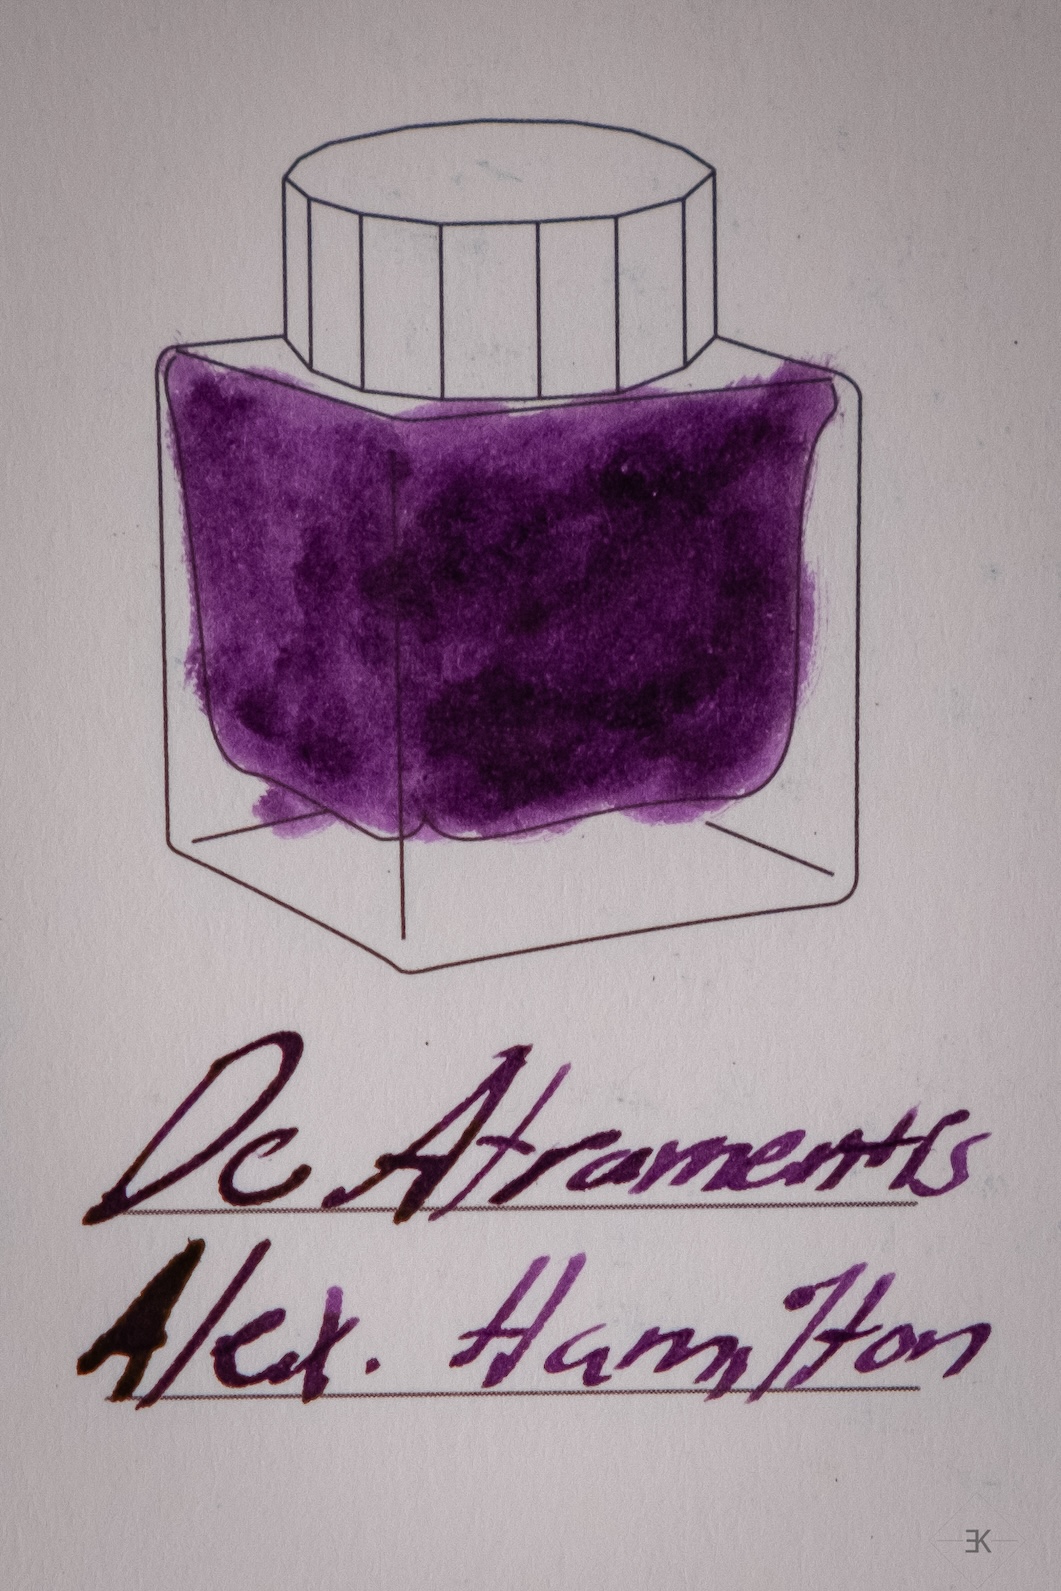 De Atramentis
Alex. Hamilton
EK